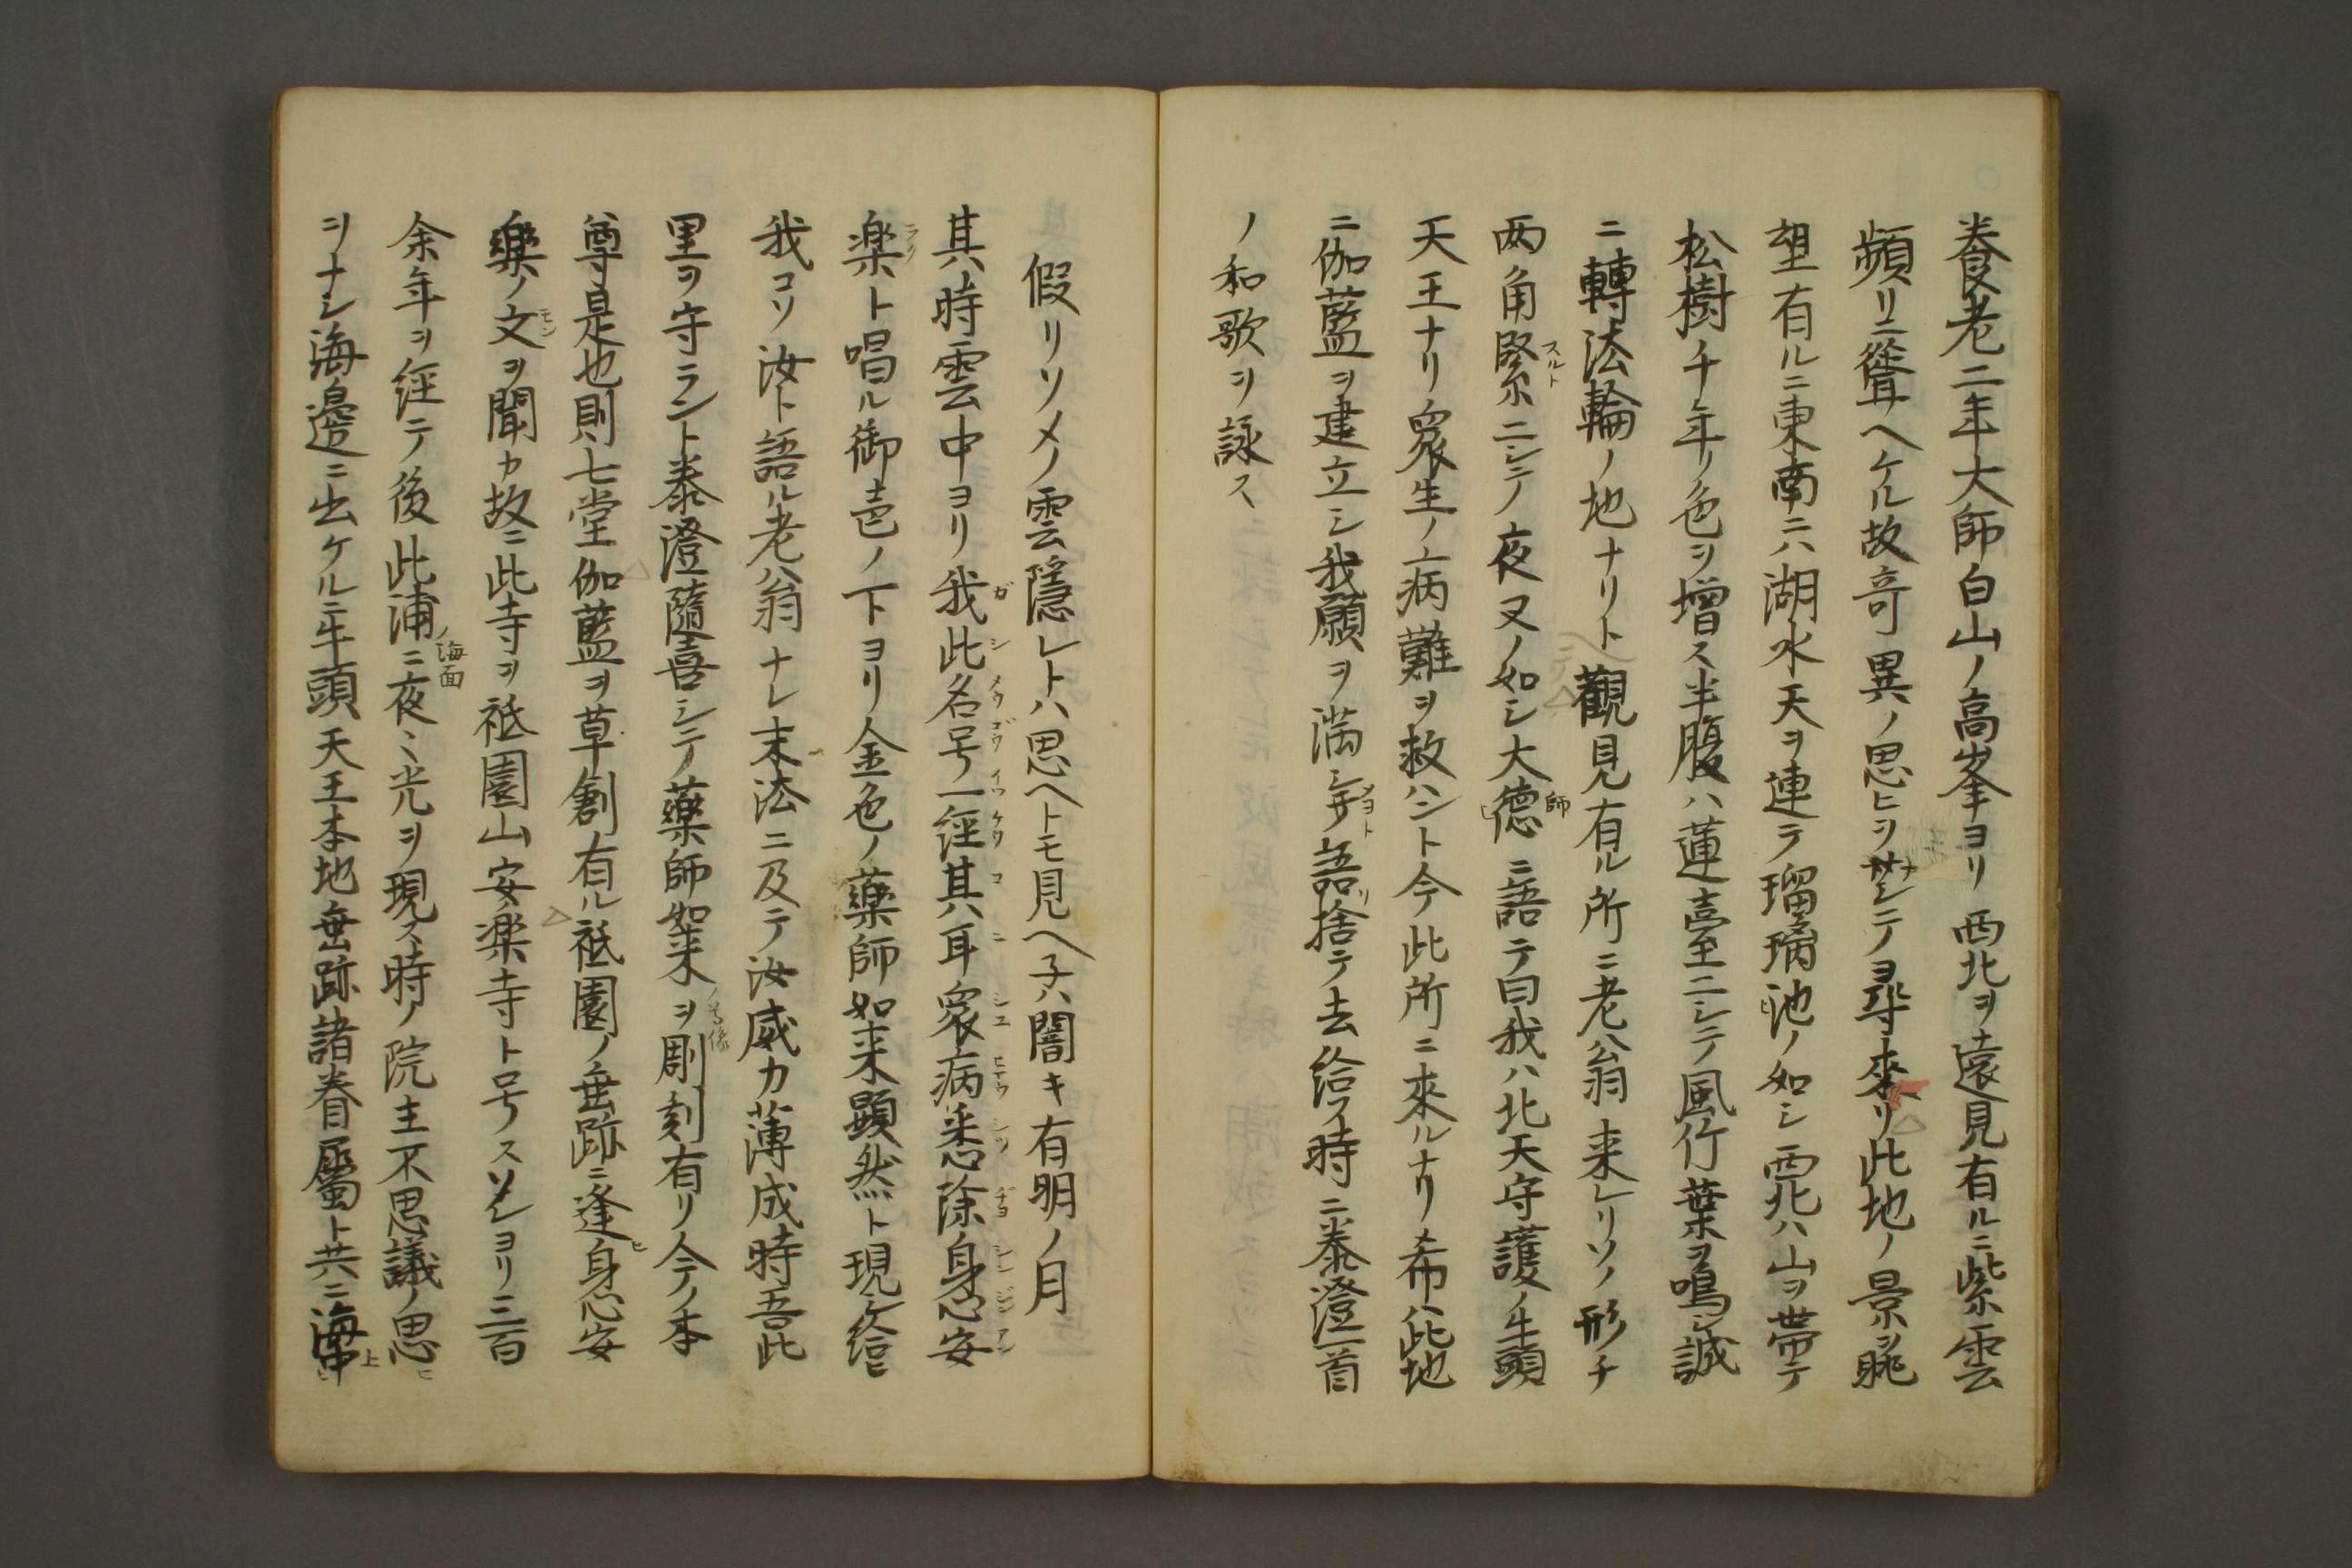 養老二年大師白山ノ高峯ヨリ西北ヲ遠見有ルニ紫雲
頻リニ聳ヘケル故竒異ノ思ヒヲナシテヨ尋来リ此地ノ景ヲ眺
望有ルニ東南ニハ湖水天ヲ連テ瑠璃池ノ如シ西北ハ山ヲ帯テ
松樹千年ノ色ヲ増ス半腹ハ蓮臺ニシテ風竹葉ヲ鳴シ誠
ニ轉法輪ノ地ナリト觀見有ル所ニ老翁来レリソノ形チ
両角緊ニシテ夜叉ノ如シ大德ニ語テ曰我ハ北天守護ノ牛頭
スルト
師
天王ナリ衆生ノ病難ヲ救ハント今此所ニ來ルナリ希ハ此地
ニ伽藍ヲ建立シ我願ヲ満シ語捨テ去給フ時ニ泰澄一首
メヨト
リ
ノ和歌ヲ詠ス
假リソメノ雲隱レトハ思ヘトモ見ヘ子ハ闇キ有明ノ月
其時雲中ヨリ我此名号一經其耳衆病悉除身心安
ガ シ メウ ゴウ イツ ケウ ゴ ニ シユ ヒヤウ シツ ヂヨ シン ジン アン
楽ト唱ル御声ノ下ヨリ金色ノ藥師如来顕然ト現シ給ヒ
ラク
我コソ汝ト語ル老翁ナレ末法ニ及テ汝威力薄成時吾此
里ヲ守ラント泰澄隨喜シテ藥師如来ヲ彫刻有リ今ノ本
ノ尊像
尊是也則七堂伽藍ヲ草創有ル祇園ノ垂跡ニ逢ヒ身心安
樂ノ文ヲ聞カ故ニ此寺ヲ祇園山安楽寺ト号スソレヨリ三百
モン
余年ヲ經テ後此浦ニ夜〻光ヲ現ス時ノ院主不思議ノ思ヒ
ノ海面
ヲナシ海邉ニ出ケルニ牛頭天王本地垂跡諸眷屬ト共ニ海中
上